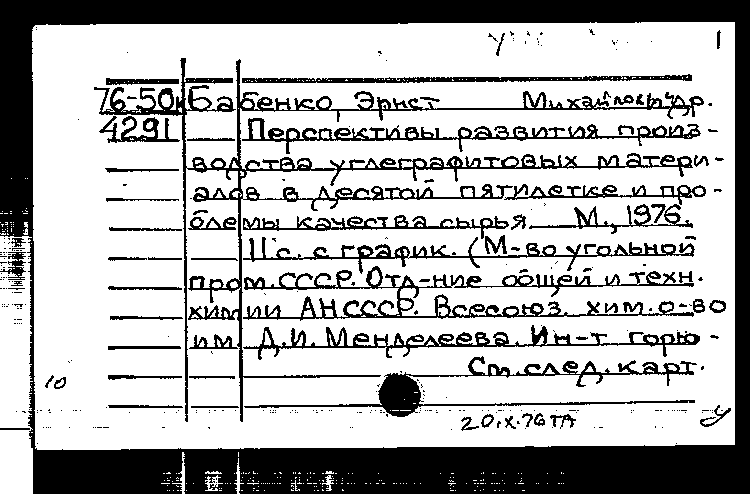 1
76-50к Бабенко, Эрнст Михайлович, др.
4291 Перспективы развития произ-
водства углеграфитовых матери-
алов в десятой пятилетке и про-
блемы качества сырья. М., 1976.
11 с. с график. (М-во угольной
пром. СССР. Отд-ние общей и техн.
химии АН СССР. Всесоюз. хим. о-во
им. Д.И. Менделеева. Ин-т горю-
См. след. карт.
10
20.X.76 ТА
У